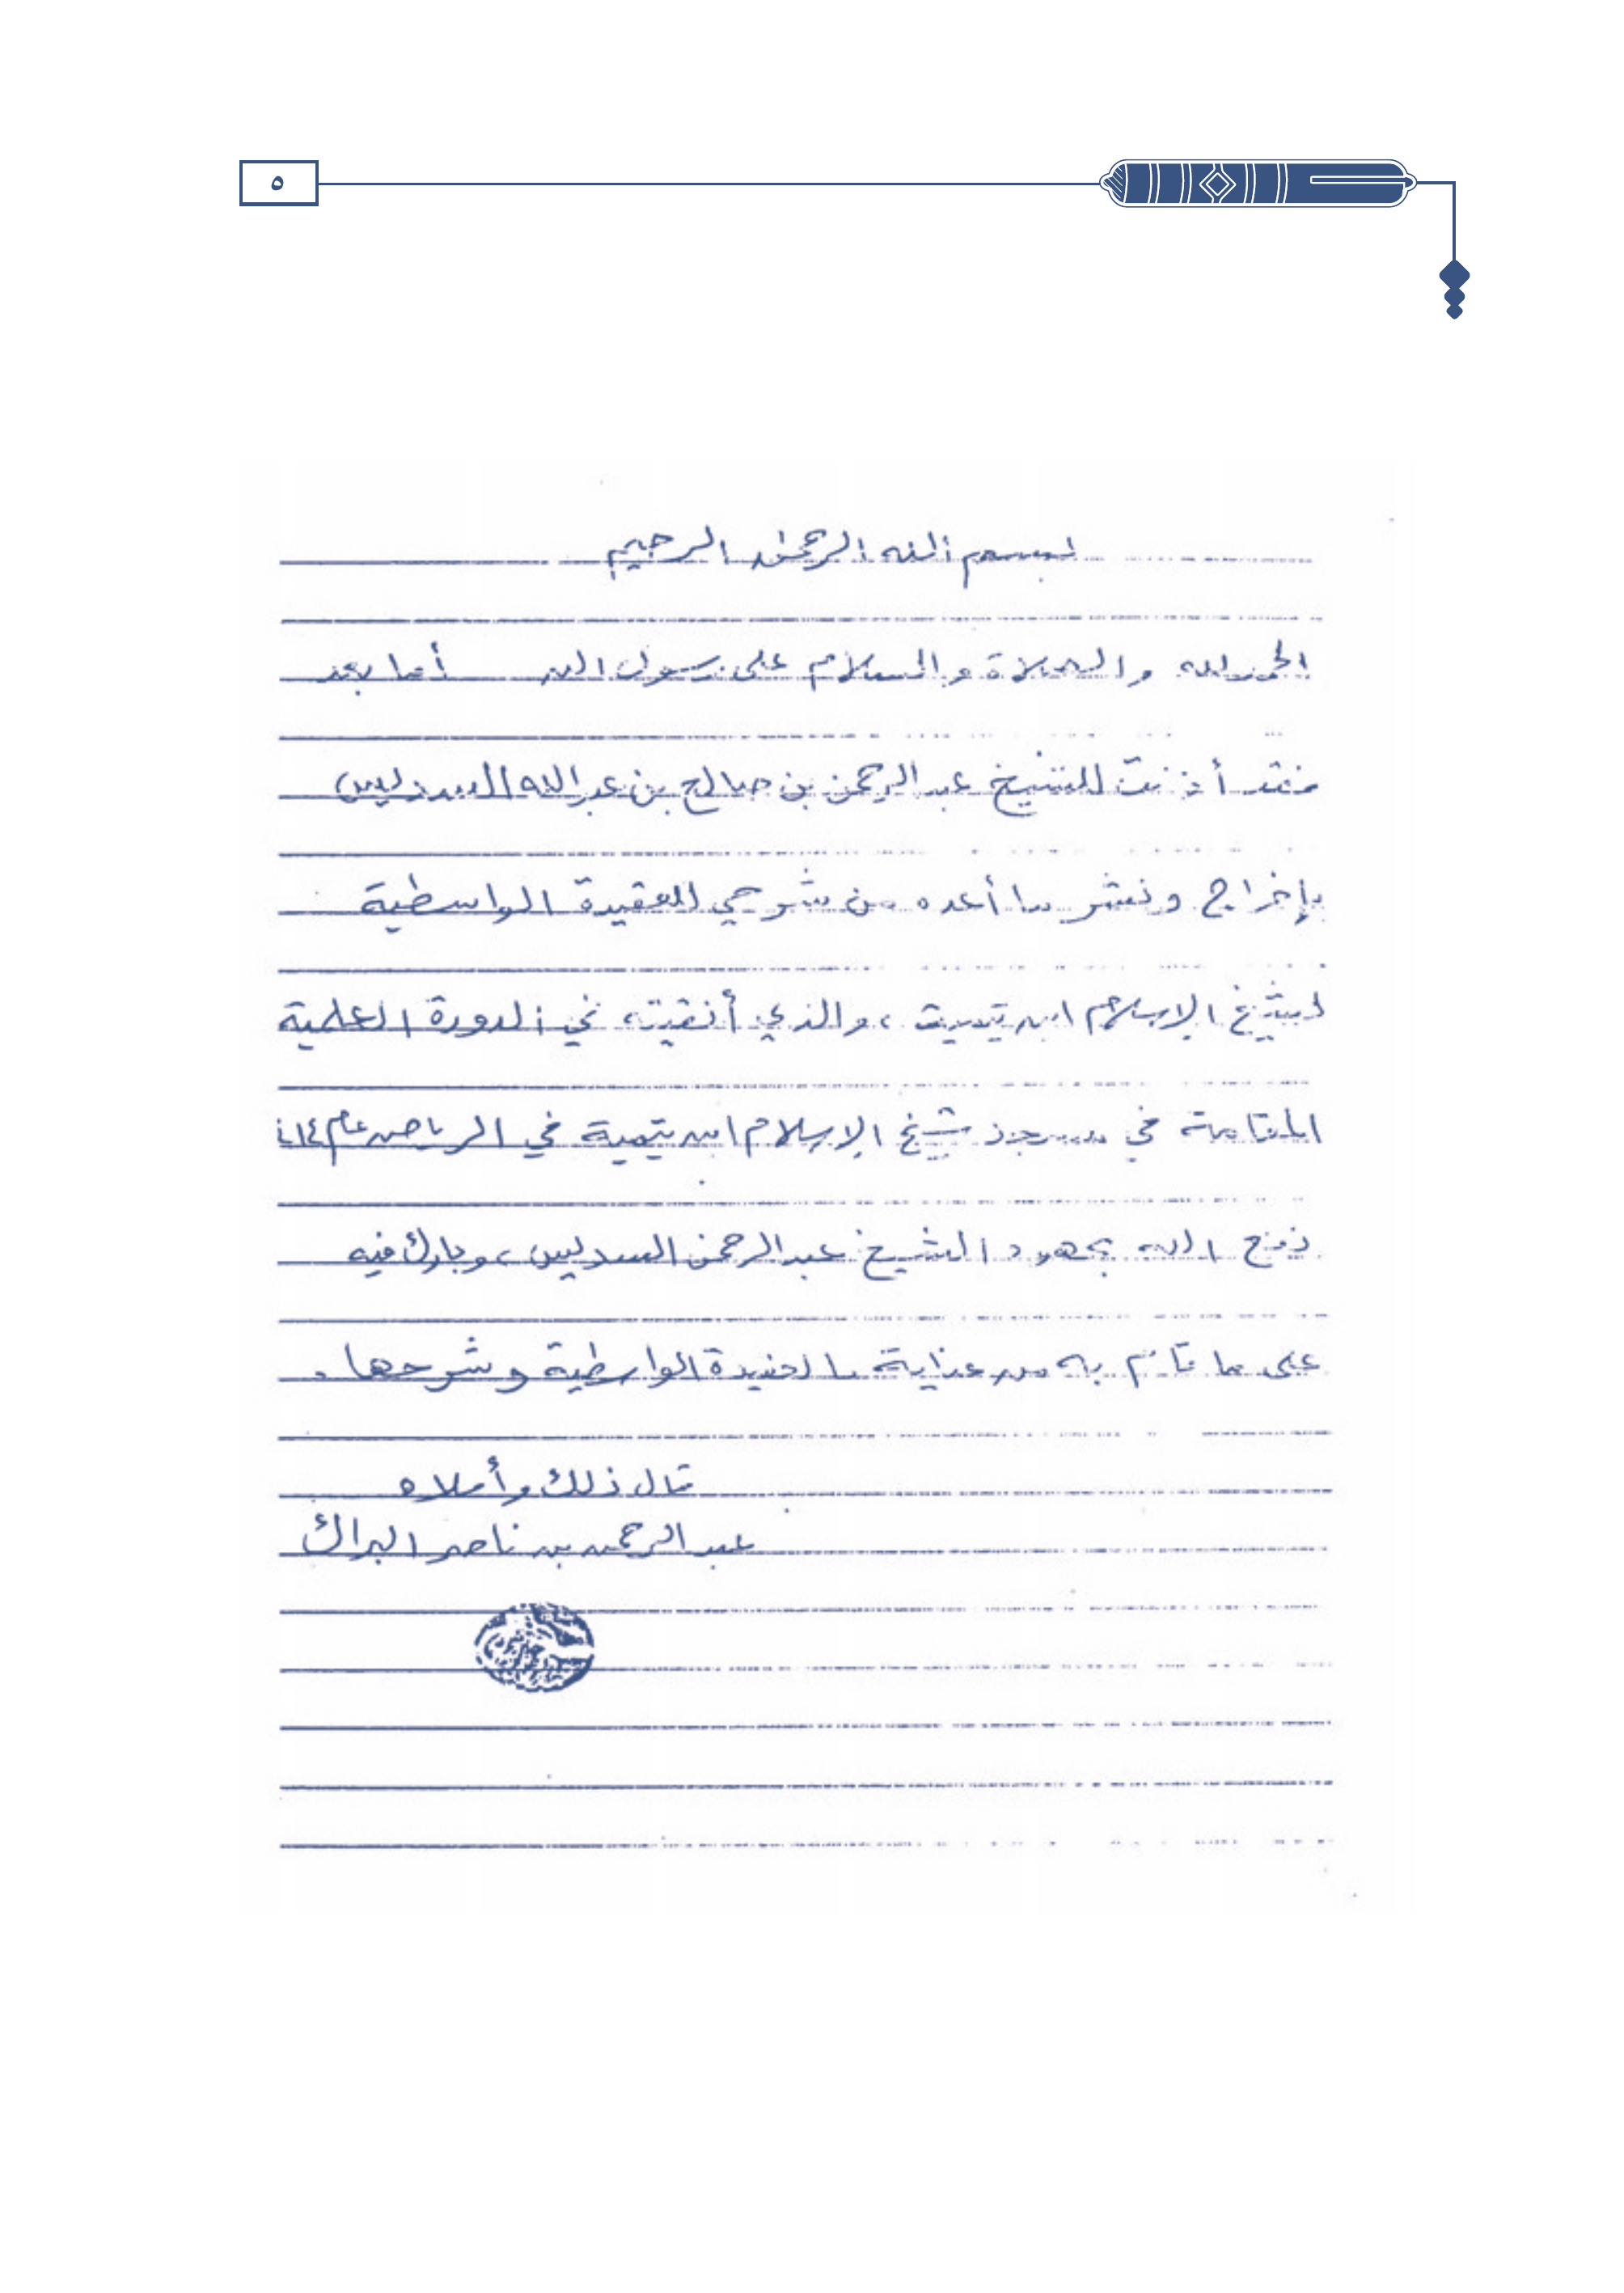 ٥
بسم الله الرحمن الرحيم
الحمد لله والصلاة والسلام على رسول الله أما بعد
فقد أذنت للشيخ عبد الرحمن بن صالح بن عبد الله السديس
بإخراج ونشر ما أعده من شرحي للعقيدة الواسطية
لشيخ الإسلام ابن تيمية ، والذي ألقيته في الدورة العلمية
المقامة في مسجد شيخ الإسلام ابن تيمية في الرياض عام
نفع الله بجهود الشيخ عبد الرحمن السديس ، وبارك فيه
على ما قام به من عناية بالعقيدة الواسطية وشرحها .
قال ذلك وأملاه
عبد الرحمن بن ناصر البراك